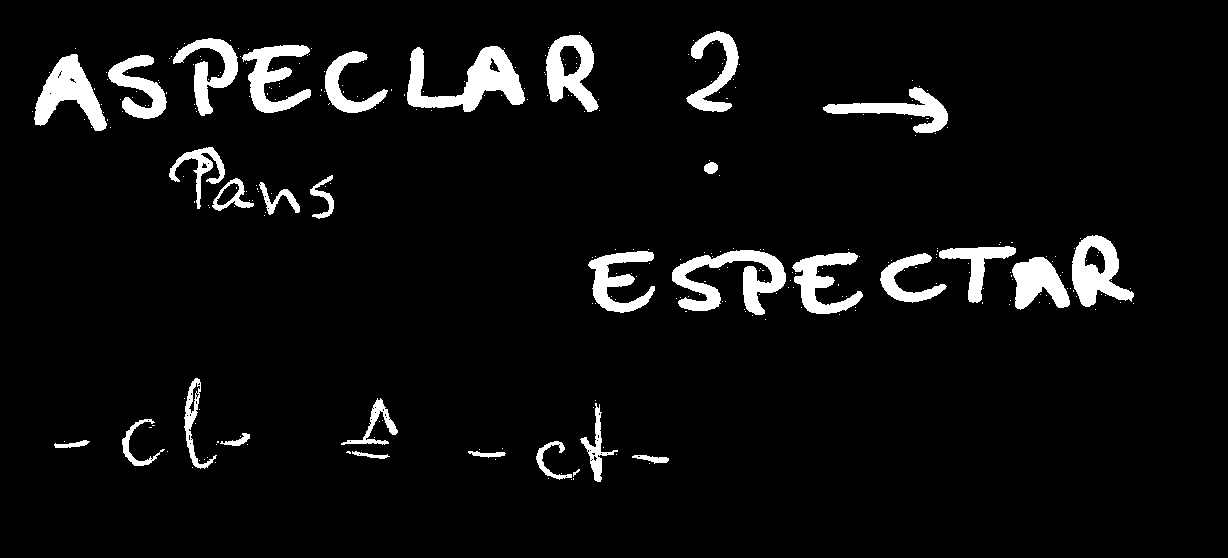 ASPECLAR ? →
Pans
ESPECTAR
-cl- ≙ -ct-